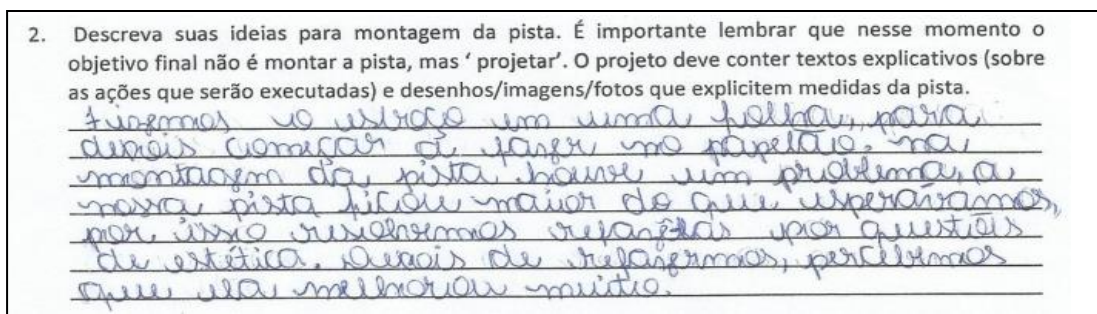 2. Descreva suas ideias para montagem da pista. É importante lembrar que nesse momento o
objetivo final não é montar a pista, mas ‘ projetar’. O projeto deve conter textos explicativos (sobre
as ações que serão executadas) e desenhos/imagens/fotos que explicitem medidas da pista.
Fizemos o esboço em uma folha, para
depois começar a fazer no papelão. na
montagem da pista houve um problema, a
nossa pista ficou maior do que esperávamos,
por isso resolvemos refazela por questões
de estética. Depois de refazermos, percebemos
que ela melhorou muito.